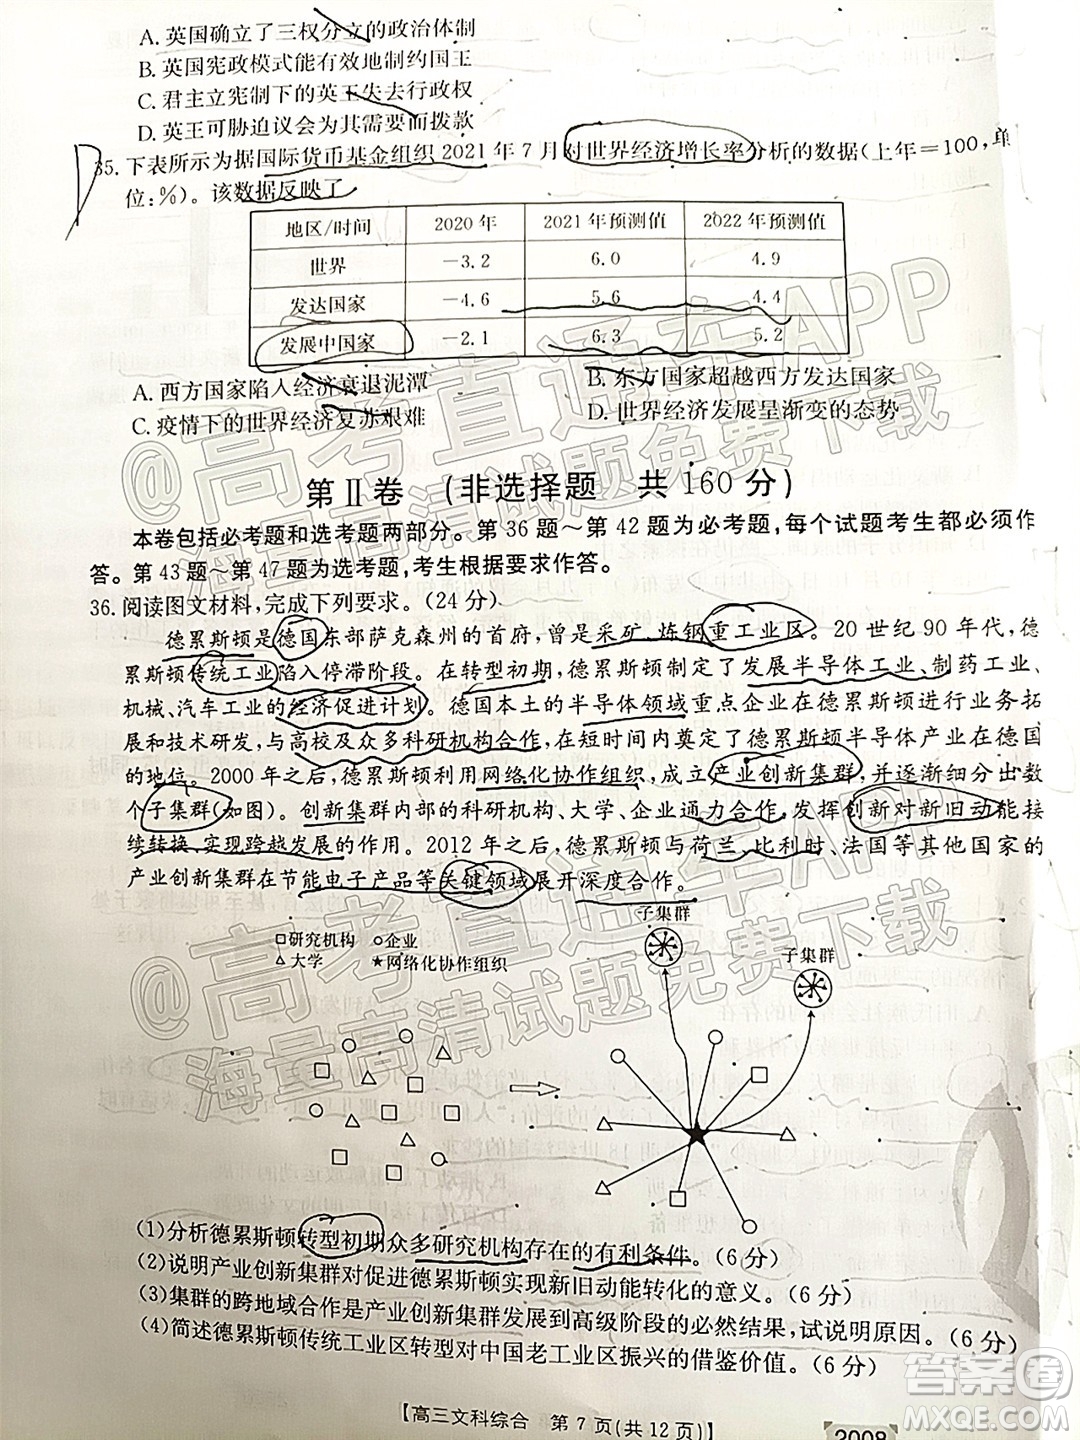 A. 英国确立了三权分立的政治体制
B. 英国宪政模式能有效地制约国王
C. 君主立宪制下的英王失去行政权
D. 英王可胁迫议会为其需要而拨款
35. 下表所示为据国际货币基金组织 2021 年 7 月对世界经济增长率分析的数据(上年=100,单
位:%)。该数据反映了
地区/时间 2020 年 2021 年预测值 2022 年预测值
世界 -3.2 6.0 4.9
发达国家 -4.6 5.6 4.4
发展中国家 -2.1 6.3 5.2
A. 西方国家陷入经济衰退泥潭 B. 东方国家超越西方发达国家
C. 疫情下的世界经济复苏艰难 D. 世界经济发展呈渐变的态势
第Ⅱ卷 (非选择题 共 160 分)
本卷包括必考题和选考题两部分。第 36 题~第 42 题为必考题,每个试题考生都必须作
答。第 43 题~第 47 题为选考题,考生根据要求作答。
36. 阅读图文材料,完成下列要求。(24 分)
德累斯顿是德国东部萨克森州的首府,曾是采矿、炼钢重工业区。20 世纪 90 年代,德
累斯顿传统工业陷入停滞阶段。在转型初期,德累斯顿制定了发展半导体工业、制药工业、
机械、汽车工业的经济促进计划。德国本土的半导体领域重点企业在德累斯顿进行业务拓
展和技术研发,与高校及众多科研机构合作,在短时间内奠定了德累斯顿半导体产业在德国
的地位。2000 年之后,德累斯顿利用网络化协作组织,成立产业创新集群,并逐渐细分出数
个子集群(如图)。创新集群内部的科研机构、大学、企业通力合作,发挥创新对新旧动能接
续转换、实现跨越发展的作用。2012 年之后,德累斯顿与荷兰、比利时、法国等其他国家的
产业创新集群在节能电子产品等关键领域展开深度合作。
子集群
□研究机构 ○企业
子集群
△大学 ★网络化协作组织
(1)分析德累斯顿转型初期众多研究机构存在的有利条件。(6 分)
(2)说明产业创新集群对促进德累斯顿实现新旧动能转化的意义。(6 分)
(3)集群的跨地域合作是产业创新集群发展到高级阶段的必然结果,试说明原因。(6 分)
(4)简述德累斯顿传统工业区转型对中国老工业区振兴的借鉴价值。(6 分)
【高三文科综合 第 7 页(共 12 页)】
2009
@高考直通车APP
海量高清试题免费下载
@高考直通车APP
海量高清试题免费下载
答案圈
MXQE.COM